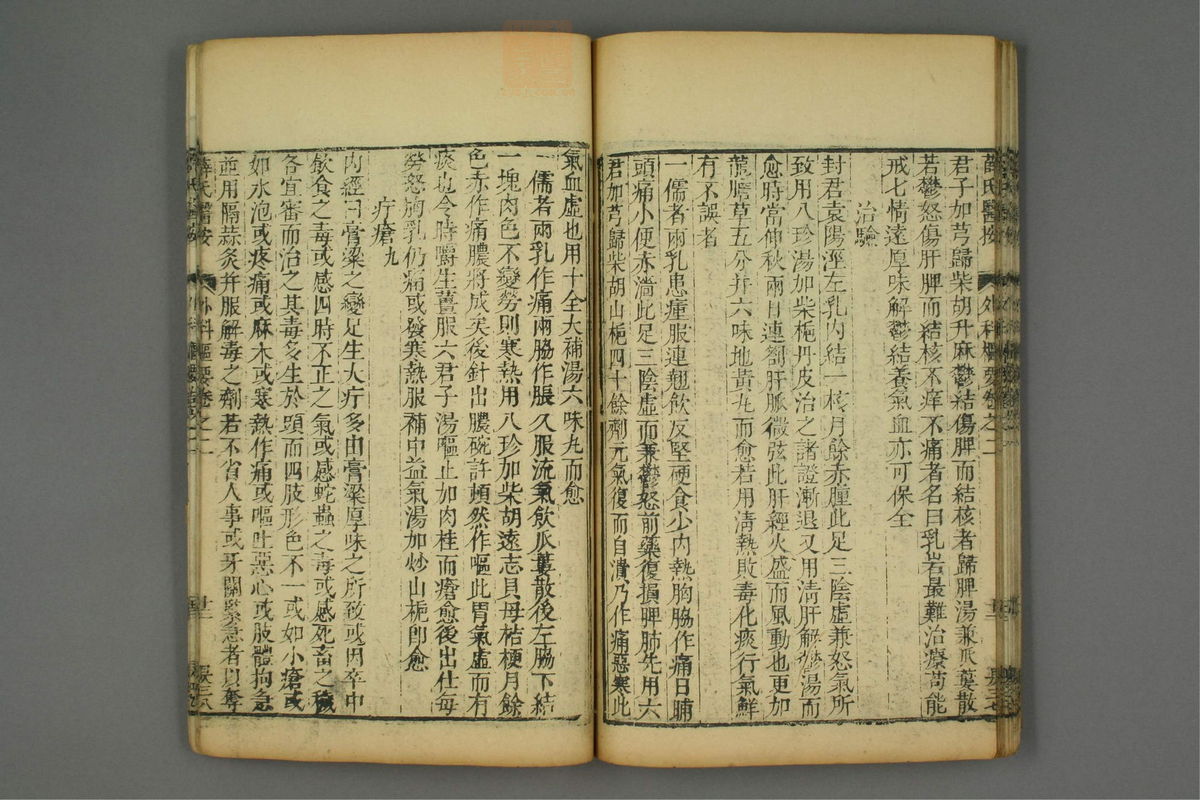 君子加芎歸柴胡升麻鬱結傷脾而結核者歸脾湯兼瓜蔞散
若鬱怒傷肝脾而結核不痒不痛者名曰乳岩最難治療苟能
戒七情遠厚味解鬱結養氣血亦可保全
治驗
封君袁陽涇左乳內結一核月餘赤腫此足三陰虛兼怒氣所
致用八珍湯加柴梔丹皮治之諸證漸退又用清肝解鬱湯而
愈時當仲秋兩目連劄肝脈微弦此肝經火盛而風動也更加
龍膽草五分并六味地黃丸而愈若用清熱敗毒化痰行氣鮮
有不誤者
一儒者兩乳患腫服連翹飲反堅硬食少內熱胸脇作痛日晡
頭痛小便赤濇此足三陰虛而兼鬱怒前藥復損脾肺先用六
君加芎歸柴胡山梔四十餘劑元氣復而自潰乃作痛惡寒此
薛氏醫按
外科樞要卷之二
氣血虛也用十全大補湯六味丸而愈
一儒者兩乳作痛兩脇作脹久服流氣飲瓜蔞散後左脇下結
一塊肉色不變勞則寒熱用八珍加柴胡遠志貝母桔梗月餘
色赤作痛膿將成矣後針出膿碗許頓然作嘔此胃氣虛而有
痰也令時嚼生薑服六君子湯嘔止加肉桂而瘡愈後出仕每
勞怒胸乳仍痛或發寒熱服補中益氣湯加炒山梔即愈
疔瘡九
內經曰膏粱之變足生大疔多由膏粱厚味之所致或因卒中
飲食之毒或感四時不正之氣或感蛇蟲之毒或感死畜之穢
各宜審而治之其毒多生於頭而四肢形色不一或如小瘡或
如水泡或疼痛或麻木或寒熱作痛或嘔吐惡心或肢體拘急
並用隔蒜灸并服解毒之劑若不省人事或牙關緊急者以奪
薛氏醫按
外科樞要卷之二
長三八